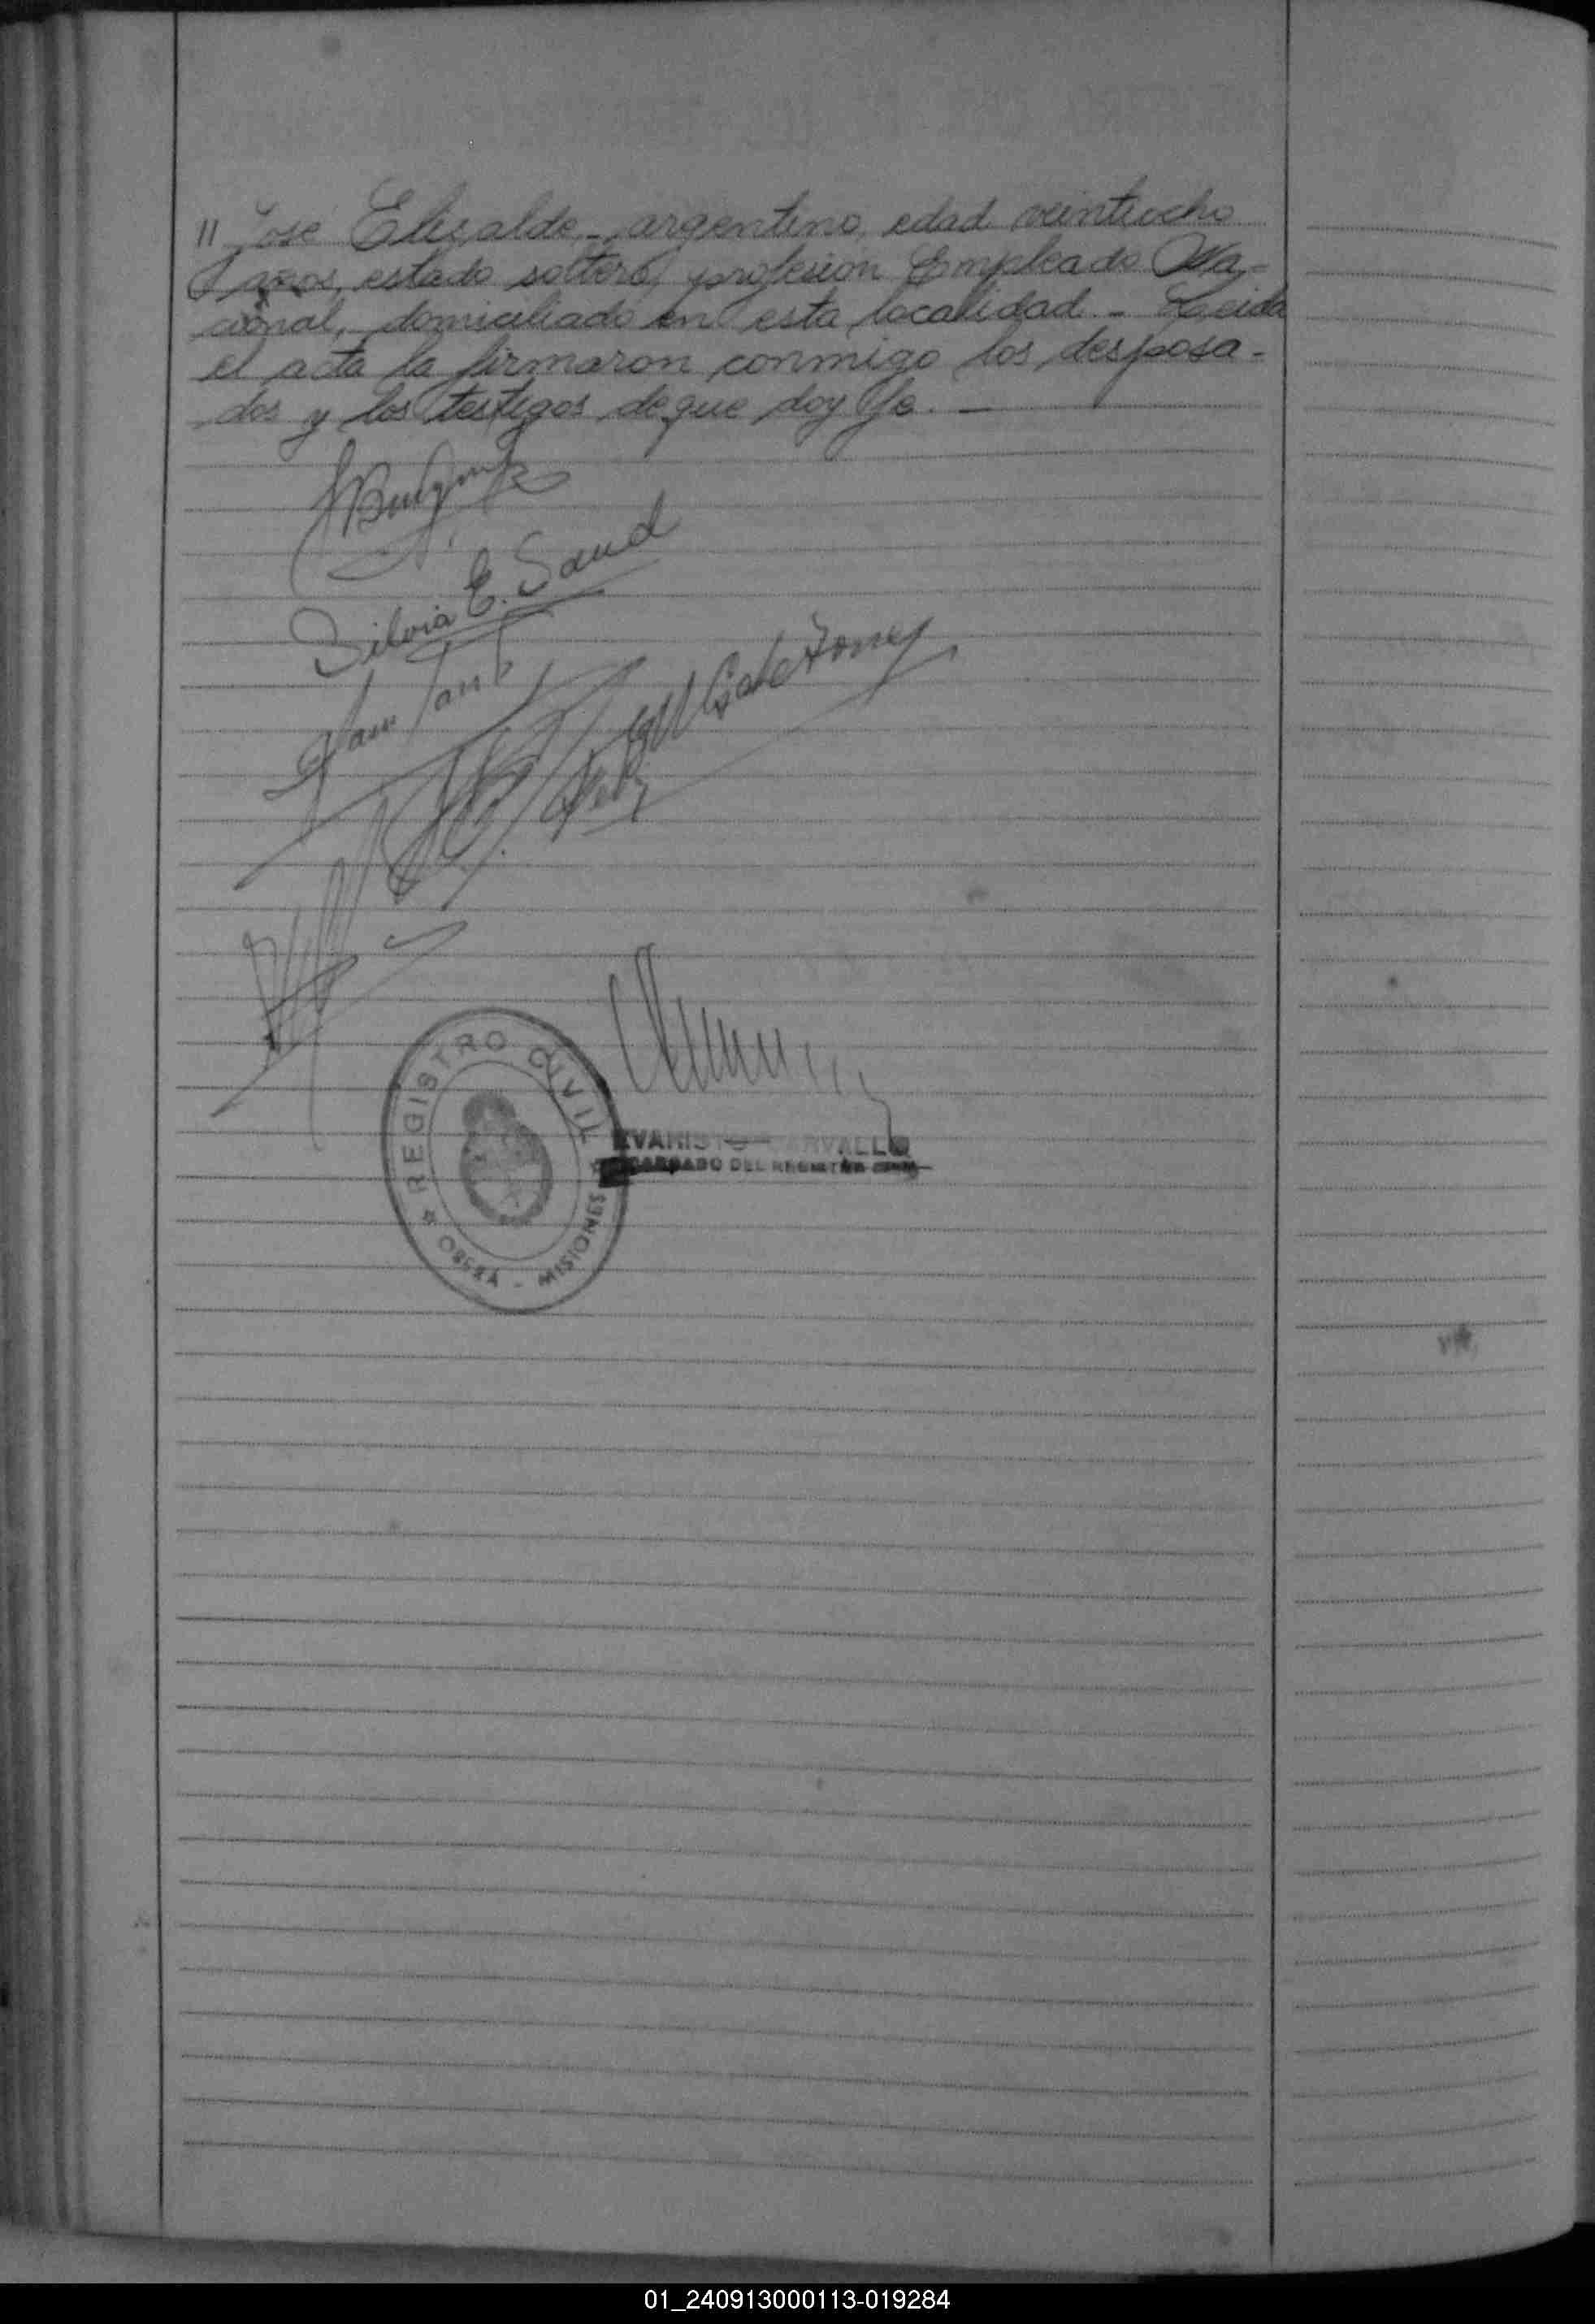 " José Elizalde - argentino, edad veintiocho
años, estado soltero, profesion Empleado Na,-
cional, domiciliado en esta localidad. - Leida
el acta la firmaron conmigo los desposa-
dos y los testigos de que doy fe. -
Silvia E. Sand
REGISTRO CIVIL
OBERA - MISIONES
EVARISTO CARVALLO
ENCARGADO DEL REGISTRO CIVIL
01_240913000113-019284